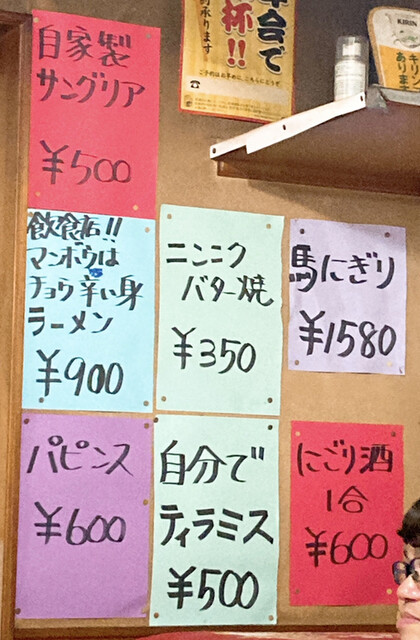 自家製
サングリア
¥500
会で
杯!!
承ります
KIRIN
キリン
あります
飲食店!!
マンボウは
チョウ辛い身
ラーメン
¥900
ニンニク
バター焼
¥350
馬にぎり
¥1580
パピンス
¥600
自分で
ティラミス
¥500
にごり酒
1合
¥600